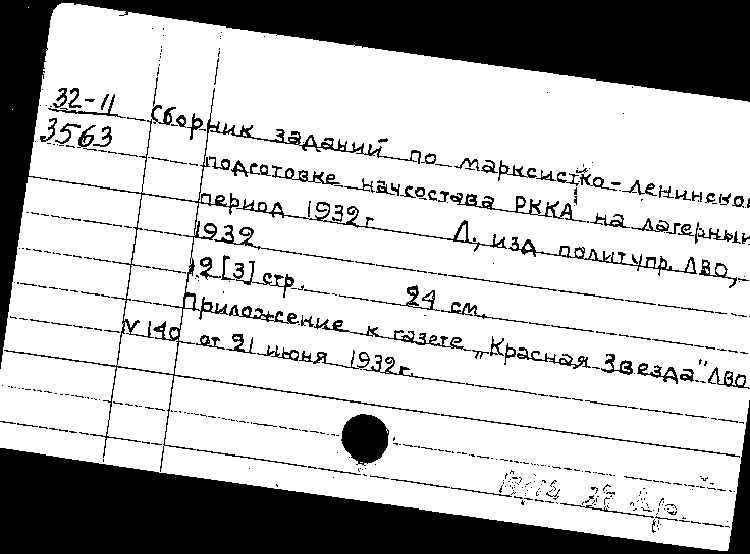 32-11
3563
Сборник заданий по марксистко-ленинской
подготовке начсостава РККА на лагерный
период 1932 г Л., изд политупр. ЛВО,
1932
12 [3] стр. 24 см.
Приложение к газете „Красная Звезда" ЛВО
N 140 от 21 июня 1932 г.